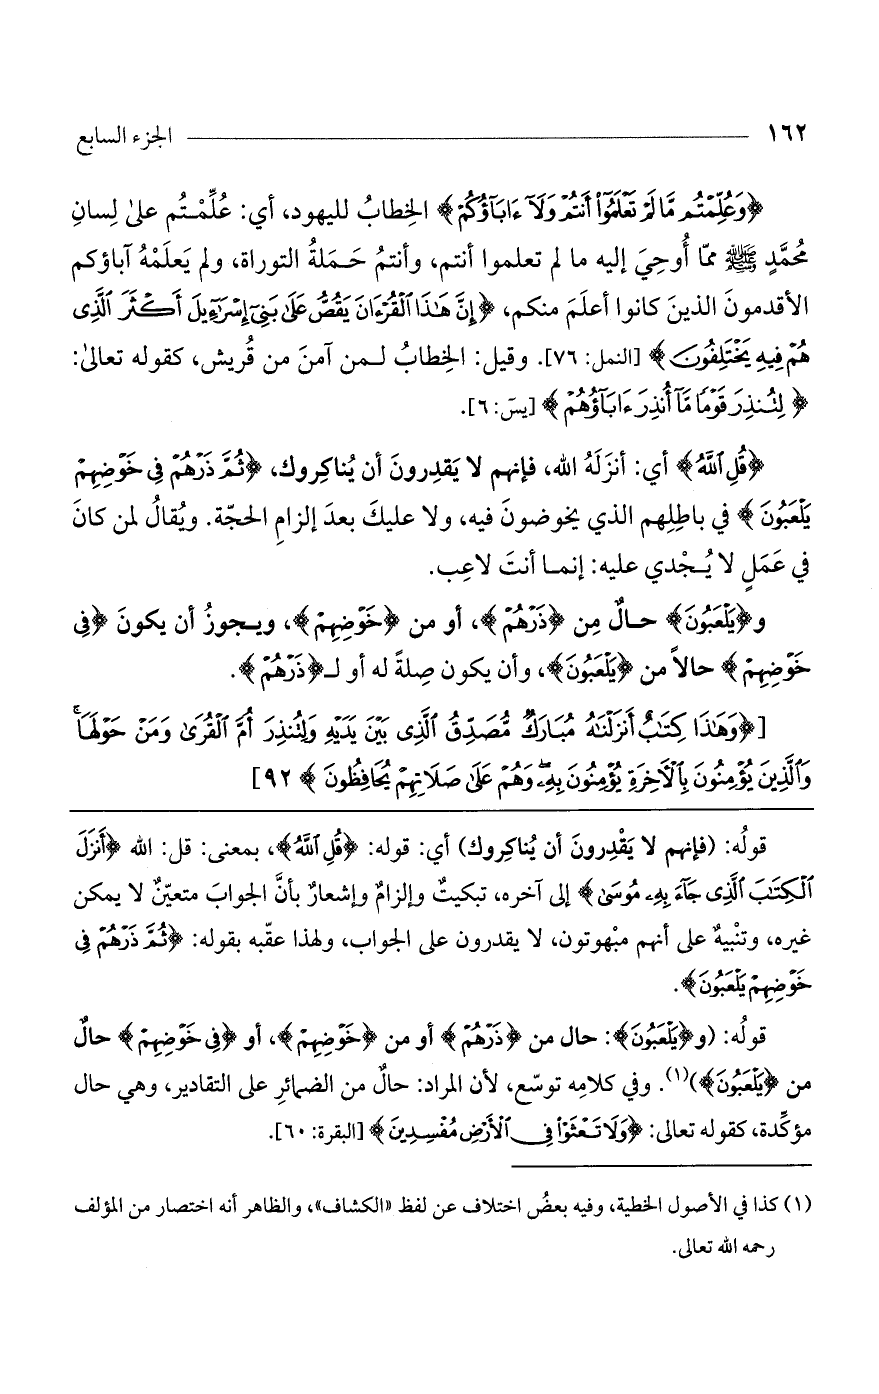 ١٦٢ الجزء السابع
﴿وَعُلِّمْتُم مَّا لَمْ تَعْلَمُوٓا۟ أَنتُمْ وَلَآ ءَابَآؤُكُمْ﴾ الخِطابُ لليهود، أي: عُلِّمْتُم على لِسانِ
مُحمَّدٍ ﷺ ممّا أُوحِيَ إليه ما لم تعلموا أنتم، وأنتمُ حَمَلةُ التوراة، ولم يَعلَمْهُ آباؤكم
الأقدمونَ الذينَ كانوا أعلَمَ منكم، ﴿إِنَّ هَـٰذَا ٱلْقُرْءَانَ يَقُصُّ عَلَىٰ بَنِىٓ إِسْرَٰٓءِيلَ أَكْثَرَ ٱلَّذِى
هُمْ فِيهِ يَخْتَلِفُونَ﴾ [النمل: ٧٦]. وقيل: الخطابُ لـمن آمنَ من قُريش، كقوله تعالىٰ:
﴿لِتُنذِرَ قَوْمًا مَّآ أُنذِرَ ءَابَآؤُهُمْ﴾ [يسَ: ٦].
﴿قُلِ ٱللَّهُ﴾ أي: أنزَلَهُ الله، فإنهم لا يَقدِرونَ أن يُناكِروك، ﴿ثُمَّ ذَرْهُمْ فِى خَوْضِهِمْ
يَلْعَبُونَ﴾ في باطِلِهم الذي يخوضونَ فيه، ولا عليكَ بعدَ إلزامِ الحجّة. ويُقالُ لمن كانَ
في عَمَلٍ لا يُـجْدي عليه: إنمـا أنتَ لاعِب.
و﴿يَلْعَبُونَ﴾ حـالٌ مِن ﴿ذَرْهُمْ﴾، أو من ﴿خَوْضِهِمْ﴾، ويـجوزُ أن يكونَ ﴿فِى
خَوْضِهِمْ﴾ حالاً من ﴿يَلْعَبُونَ﴾، وأن يكون صِلةً له أو لـ﴿ذَرْهُمْ﴾.
[﴿وَهَـٰذَا كِتَـٰبٌ أَنزَلْنَـٰهُ مُبَارَكٌ مُّصَدِّقُ ٱلَّذِى بَيْنَ يَدَيْهِ وَلِتُنذِرَ أُمَّ ٱلْقُرَىٰ وَمَنْ حَوْلَهَا ۚ
وَٱلَّذِينَ يُؤْمِنُونَ بِٱلْـَٔاخِرَةِ يُؤْمِنُونَ بِهِۦ ۖ وَهُمْ عَلَىٰ صَلَاتِهِمْ يُحَافِظُونَ﴾ ٩٢]
قولُه: (فإنهم لا يَقْدِرونَ أن يُناكِروك) أي: قوله: ﴿قُلِ ٱللَّهُ﴾، بمعنى: قل: الله ﴿أَنزَلَ
ٱلْكِتَـٰبَ ٱلَّذِى جَآءَ بِهِۦ مُوسَىٰ﴾ إلى آخره، تبكيتٌ وإلزامٌ وإشعارٌ بأنَّ الجوابَ متعيّنٌ لا يمكن
غيره، وتنْبيهٌ على أنهم مبْهوتون، لا يقدرون على الجواب، ولهذا عقّبه بقوله: ﴿ثُمَّ ذَرْهُمْ فِى
خَوْضِهِمْ يَلْعَبُونَ﴾.
قولُه: (و﴿يَلْعَبُونَ﴾: حال من ﴿ذَرْهُمْ﴾ أو من ﴿خَوْضِهِمْ﴾، أو ﴿فِى خَوْضِهِمْ﴾ حالٌ
من ﴿يَلْعَبُونَ﴾)(١). وفي كلامِه توسّع، لأن المراد: حالٌ من الضمائرِ على التقادير، وهي حال
مؤكِّدة، كقوله تعالى: ﴿وَلَا تَعْثَوْا۟ فِى ٱلْأَرْضِ مُفْسِدِينَ﴾ [البقرة: ٦٠].
(١) كذا في الأصول الخطية، وفيه بعضُ اختلاف عن لفظ «الكشاف»، والظاهر أنه اختصار من المؤلف
رحمه الله تعالى.